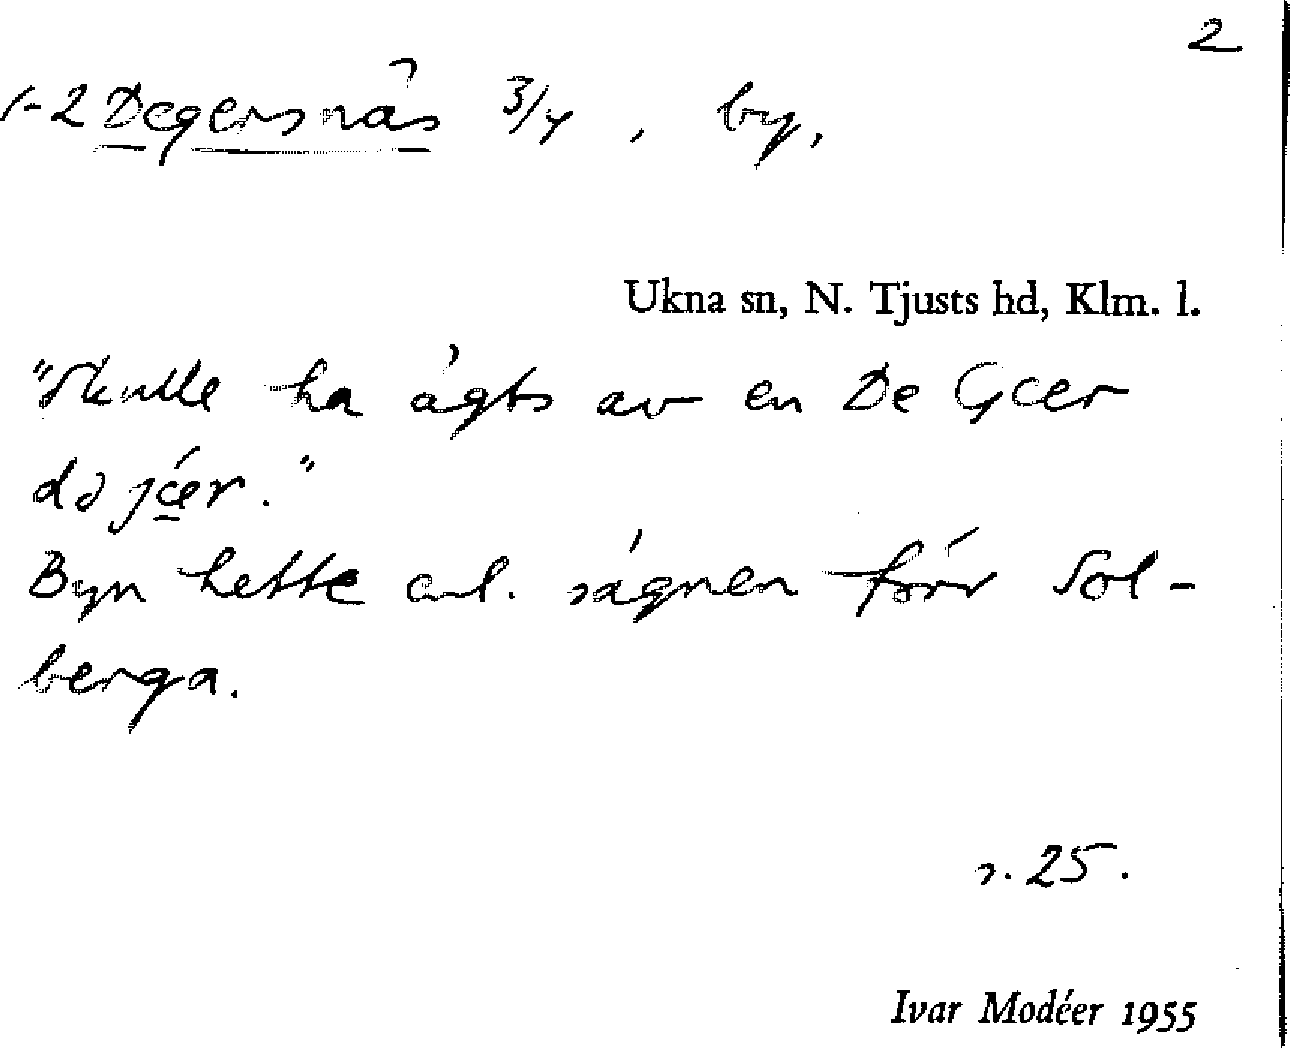 2
1-2 Degersnäs 3/4, by,
Ukna sn, N. Tjusts hd, Klm. l.
"Skulle ha ägts av en De Geer
də jǽr."
Byn hette enl. sägnen förr Sol-
berga.
s. 25.
Ivar Modéer 1955